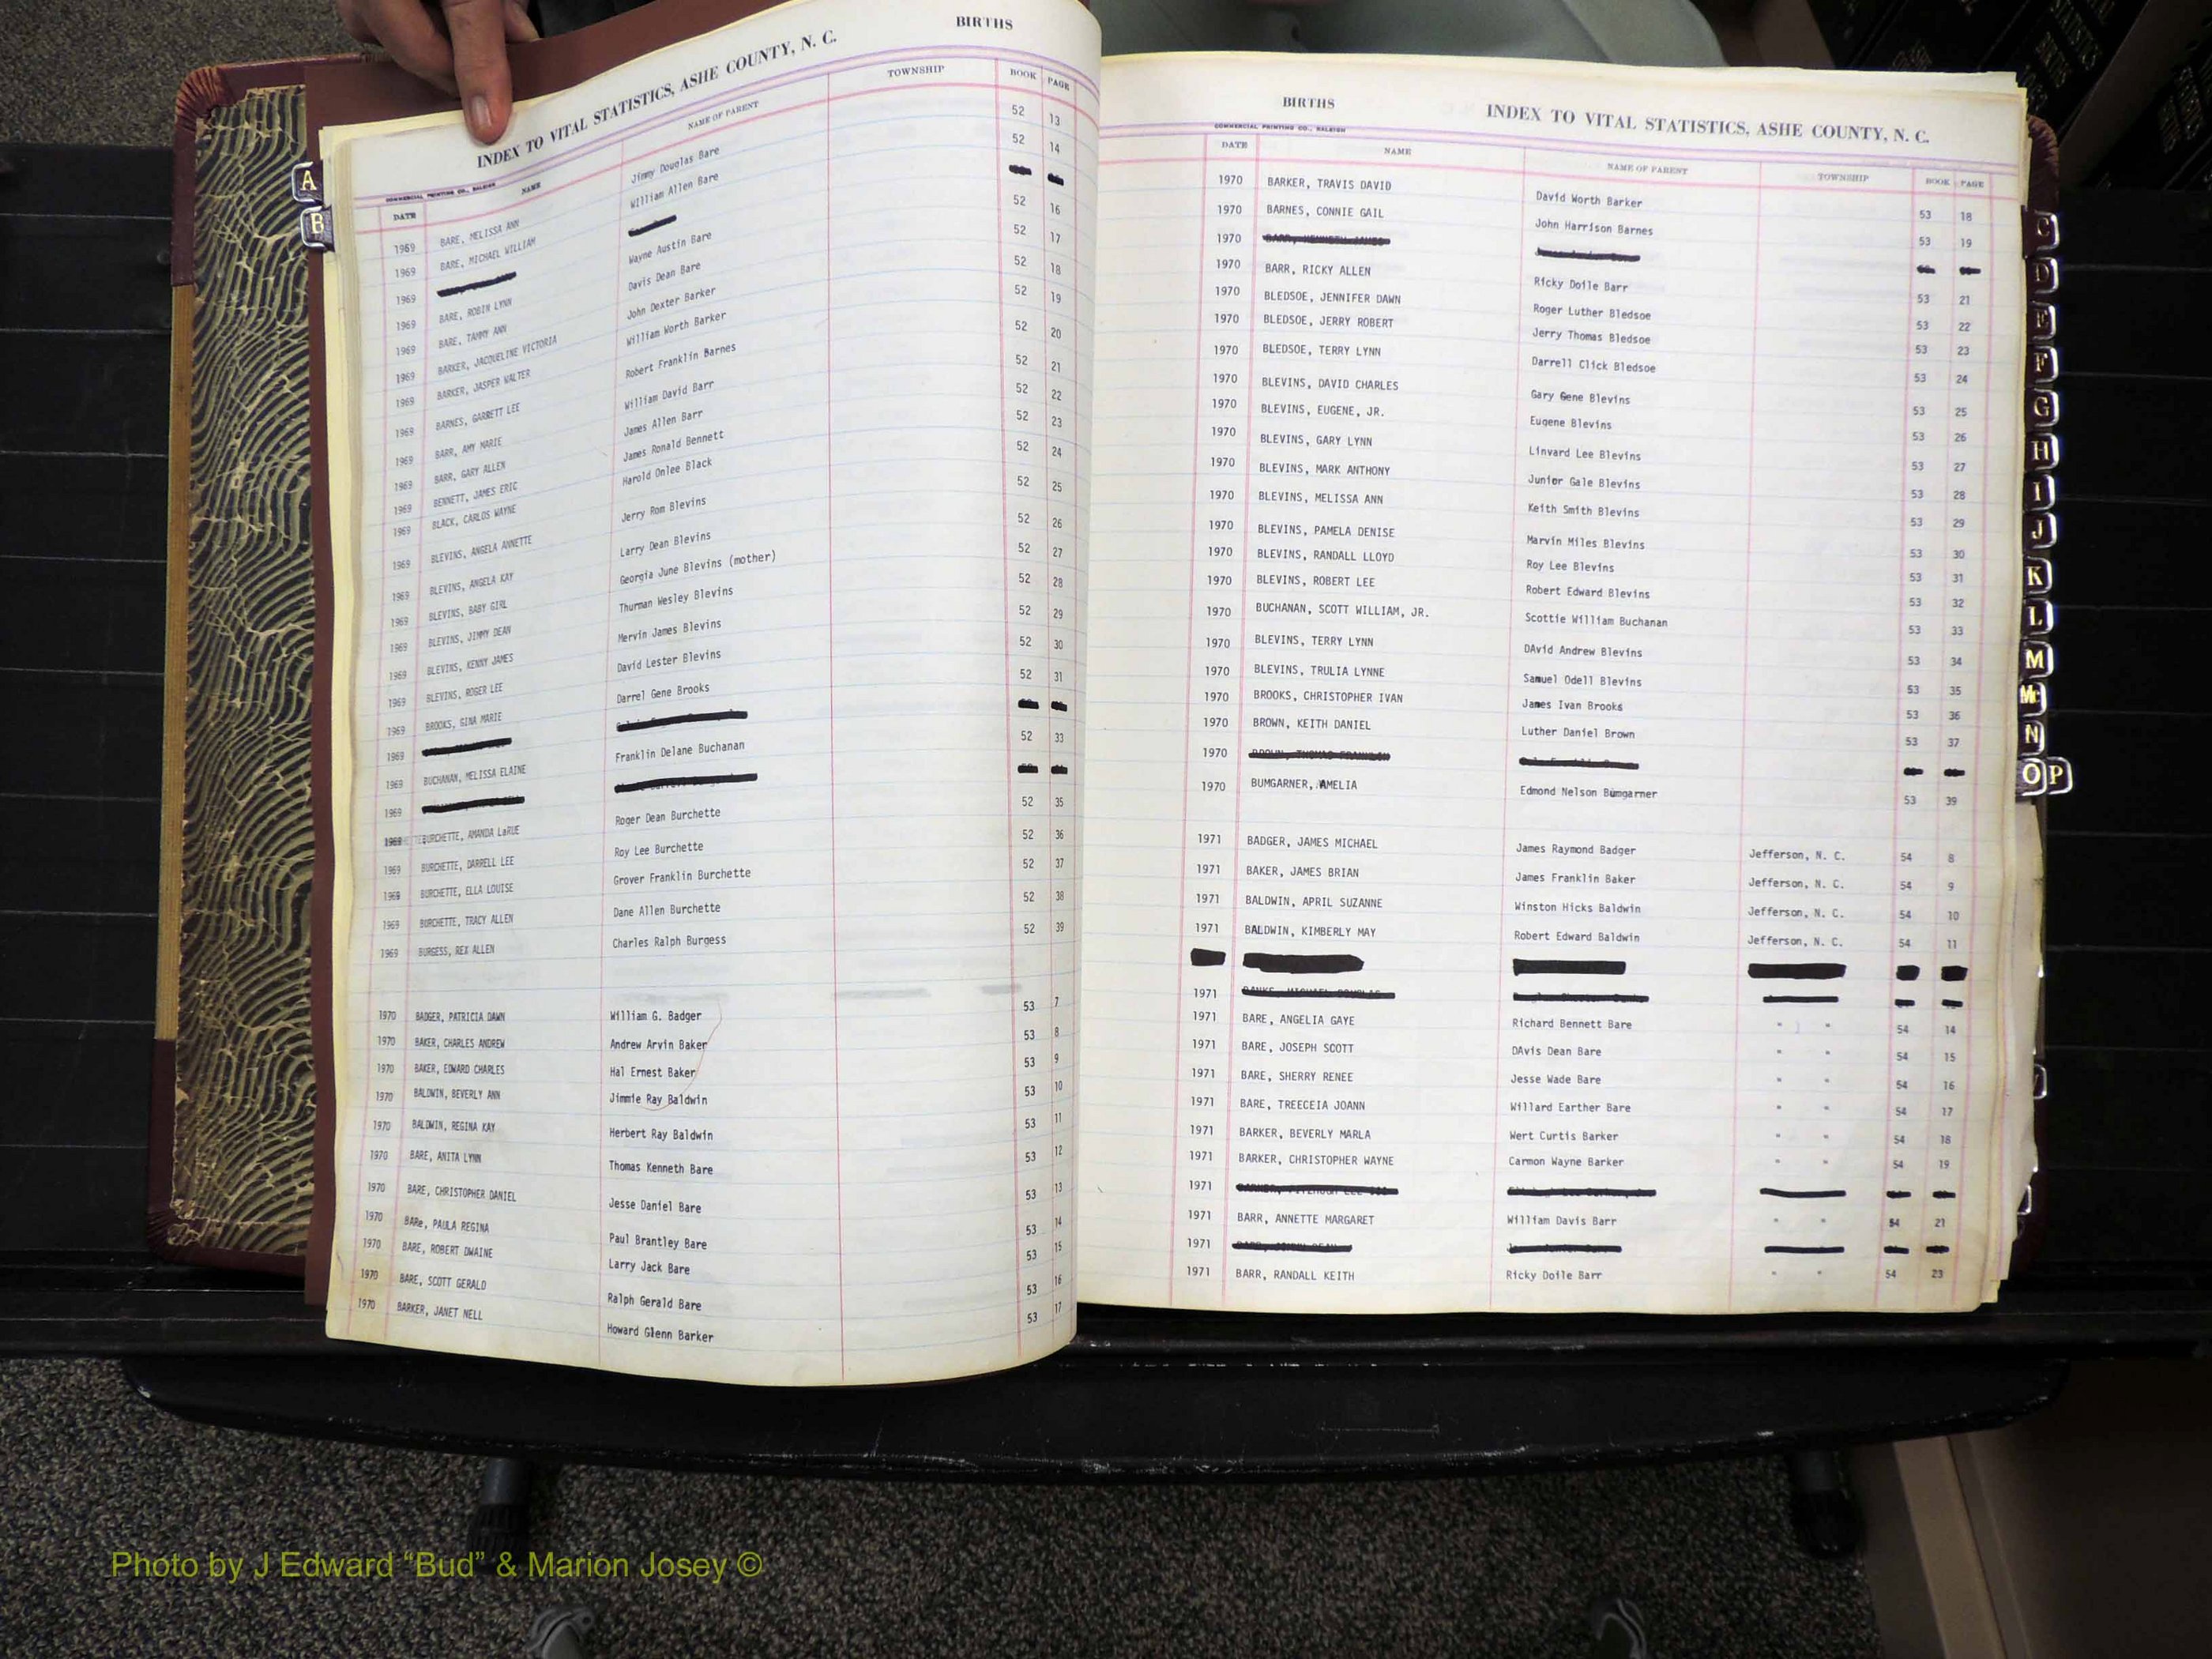 INDEX TO VITAL STATISTICS, ASHE COUNTY, N. C. BIRTHS
COMMERCIAL PRINTING CO., RALEIGH
DATE NAME NAME OF PARENT TOWNSHIP BOOK PAGE
1969 BARE, MELISSA ANN Jimmy Douglas Bare 52 13
1969 BARE, MICHAEL WILLIAM William Allen Bare 52 14
1969
1969 BARE, ROBIN LYNN Wayne Austin Bare 52 16
1969 BARE, TAMMY ANN Davis Dean Bare 52 17
1969 BARKER, JACQUELINE VICTORIA John Dexter Barker 52 18
1969 BARKER, JASPER WALTER William Worth Barker 52 19
1969 BARNES, GARRETT LEE Robert Franklin Barnes 52 20
1969 BARR, AMY MARIE William David Barr 52 21
1969 BARR, GARY ALLEN James Allen Barr 52 22
1969 BENNETT, JAMES ERIC James Ronald Bennett 52 23
1969 BLACK, CARLOS WAYNE Harold Onlee Black 52 24
1969 BLEVINS, ANGELA ANNETTE Jerry Rom Blevins 52 25
1969 BLEVINS, ANGELA KAY Larry Dean Blevins 52 26
1969 BLEVINS, BABY GIRL Georgia June Blevins (mother) 52 27
1969 BLEVINS, JIMMY DEAN Thurman Wesley Blevins 52 28
1969 BLEVINS, KENNY JAMES Mervin James Blevins 52 29
1969 BLEVINS, ROGER LEE David Lester Blevins 52 30
1969 BROOKS, GINA MARIE Darrel Gene Brooks 52 31
1969
1969 BUCHANAN, MELISSA ELAINE Franklin Delane Buchanan 52 33
1969
1969 BURCHETTE, AMANDA LaRUE Roger Dean Burchette 52 35
1969 BURCHETTE, DARRELL LEE Roy Lee Burchette 52 36
1969 BURCHETTE, ELLA LOUISE Grover Franklin Burchette 52 37
1969 BURCHETTE, TRACY ALLEN Dane Allen Burchette 52 38
1969 BURGESS, REX ALLEN Charles Ralph Burgess 52 39
1970 BADGER, PATRICIA DAWN William G. Badger 53 7
1970 BAKER, CHARLES ANDREW Andrew Arvin Baker 53 8
1970 BAKER, EDWARD CHARLES Hal Ernest Baker 53 9
1970 BALDWIN, BEVERLY ANN Jimmie Ray Baldwin 53 10
1970 BALDWIN, REGINA KAY Herbert Ray Baldwin 53 11
1970 BARE, ANITA LYNN Thomas Kenneth Bare 53 12
1970 BARE, CHRISTOPHER DANIEL Jesse Daniel Bare 53 13
1970 BARe, PAULA REGINA Paul Brantley Bare 53 14
1970 BARE, ROBERT DWAINE Larry Jack Bare 53 15
1970 BARE, SCOTT GERALD Ralph Gerald Bare 53 16
1970 BARKER, JANET NELL Howard Glenn Barker 53 17
BIRTHS INDEX TO VITAL STATISTICS, ASHE COUNTY, N. C.
COMMERCIAL PRINTING CO., RALEIGH
DATE NAME NAME OF PARENT TOWNSHIP BOOK PAGE
1970 BARKER, TRAVIS DAVID David Worth Barker 53 18
1970 BARNES, CONNIE GAIL John Harrison Barnes 53 19
1970
1970 BARR, RICKY ALLEN Ricky Doile Barr 53 21
1970 BLEDSOE, JENNIFER DAWN Roger Luther Bledsoe 53 22
1970 BLEDSOE, JERRY ROBERT Jerry Thomas Bledsoe 53 23
1970 BLEDSOE, TERRY LYNN Darrell Click Bledsoe 53 24
1970 BLEVINS, DAVID CHARLES Gary Gene Blevins 53 25
1970 BLEVINS, EUGENE, JR. Eugene Blevins 53 26
1970 BLEVINS, GARY LYNN Linvard Lee Blevins 53 27
1970 BLEVINS, MARK ANTHONY Junior Gale Blevins 53 28
1970 BLEVINS, MELISSA ANN Keith Smith Blevins 53 29
1970 BLEVINS, PAMELA DENISE Marvin Miles Blevins 53 30
1970 BLEVINS, RANDALL LLOYD Roy Lee Blevins 53 31
1970 BLEVINS, ROBERT LEE Robert Edward Blevins 53 32
1970 BUCHANAN, SCOTT WILLIAM, JR. Scottie William Buchanan 53 33
1970 BLEVINS, TERRY LYNN DAvid Andrew Blevins 53 34
1970 BLEVINS, TRULIA LYNNE Samuel Odell Blevins 53 35
1970 BROOKS, CHRISTOPHER IVAN James Ivan Brooks 53 36
1970 BROWN, KEITH DANIEL Luther Daniel Brown 53 37
1970
1970 BUMGARNER, AMELIA Edmond Nelson Bumgarner 53 39
1971 BADGER, JAMES MICHAEL James Raymond Badger Jefferson, N. C. 54 8
1971 BAKER, JAMES BRIAN James Franklin Baker Jefferson, N. C. 54 9
1971 BALDWIN, APRIL SUZANNE Winston Hicks Baldwin Jefferson, N. C. 54 10
1971 BALDWIN, KIMBERLY MAY Robert Edward Baldwin Jefferson, N. C. 54 11
1971
1971 BARE, ANGELIA GAYE Richard Bennett Bare " " 54 14
1971 BARE, JOSEPH SCOTT DAvis Dean Bare " " 54 15
1971 BARE, SHERRY RENEE Jesse Wade Bare " " 54 16
1971 BARE, TREECEIA JOANN Willard Earther Bare " " 54 17
1971 BARKER, BEVERLY MARLA Wert Curtis Barker " " 54 18
1971 BARKER, CHRISTOPHER WAYNE Carmon Wayne Barker " " 54 19
1971
1971 BARR, ANNETTE MARGARET William Davis Barr " " 54 21
1971
1971 BARR, RANDALL KEITH Ricky Doile Barr " " 54 23
A
B
C
D
E
F
G
H
I
J
K
L
M
Mc
N
O P
Photo by J Edward “Bud” & Marion Josey ©